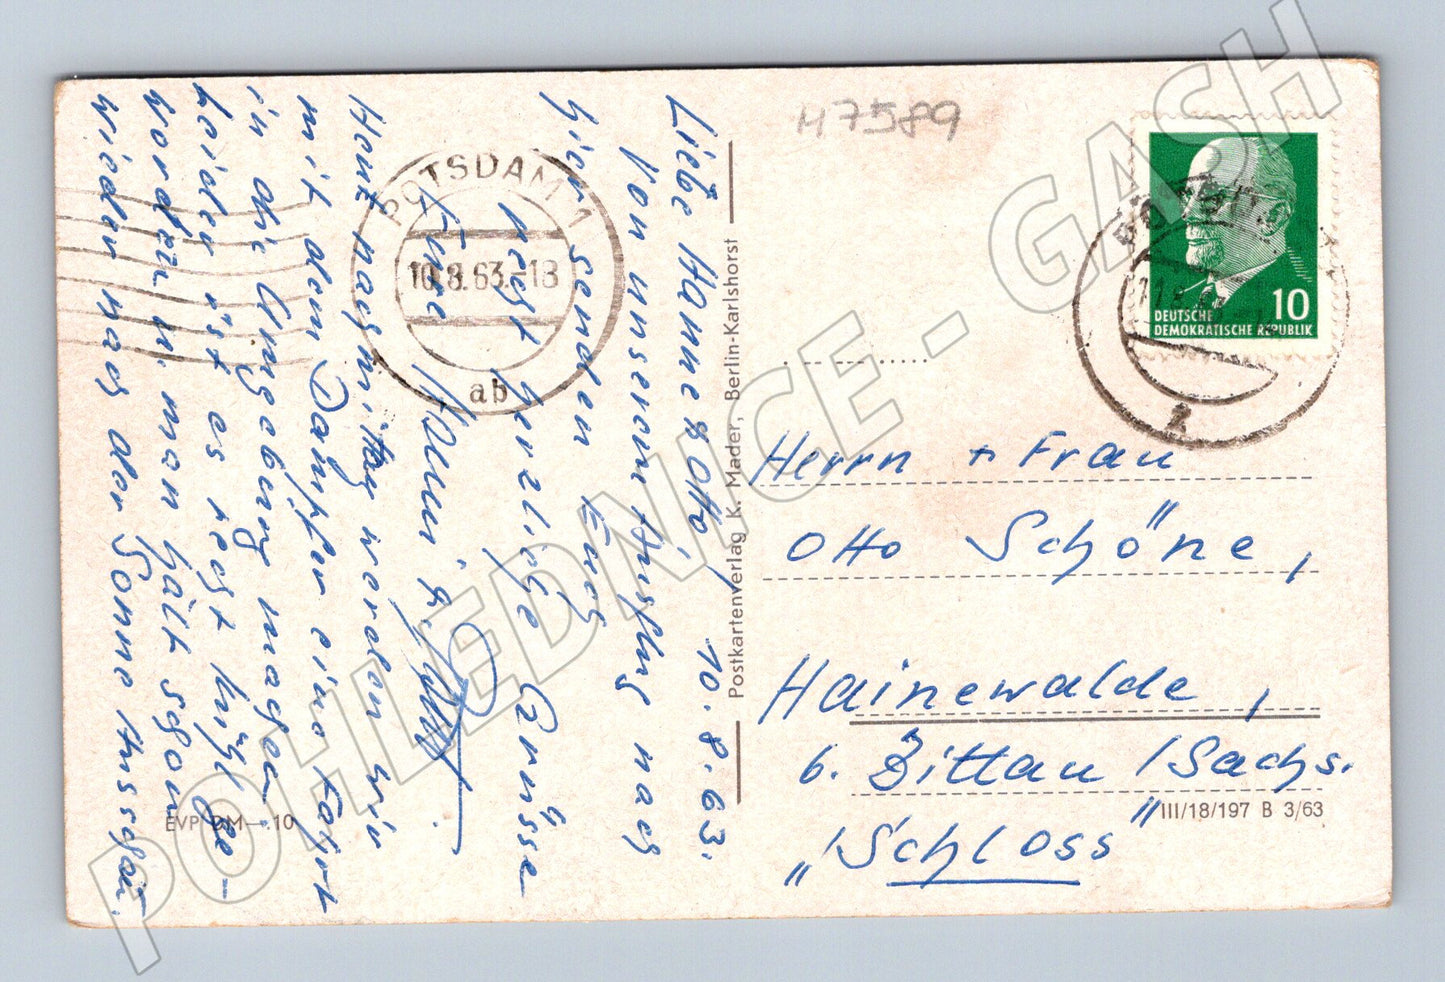 Liebe Hanne & Otto! 10.8.63.
Von unserem Ausflug nach
hier senden Euch
recht herzliche Grüsse
Eure Hanni &
Heut nachmittag werden wir
mit dem Dampfer eine Fahrt
in die Umgebung machen.
Leider ist es recht kühl ge-
worden u. man hält schon
wieder nach der Sonne Ausschau.
POTSDAM 1
10.8.63.-18
ab
EVP DM —.10
Postkartenverlag K. Mader, Berlin-Karlshorst
H7589
10
DEUTSCHE
DEMOKRATISCHE REPUBLIK
Herrn + Frau
Otto Schöne,
Hainewalde,
b. Zittau /Sachs.
"Schloss"
III/18/197 B 3/63
POHLEDNICE - GASH